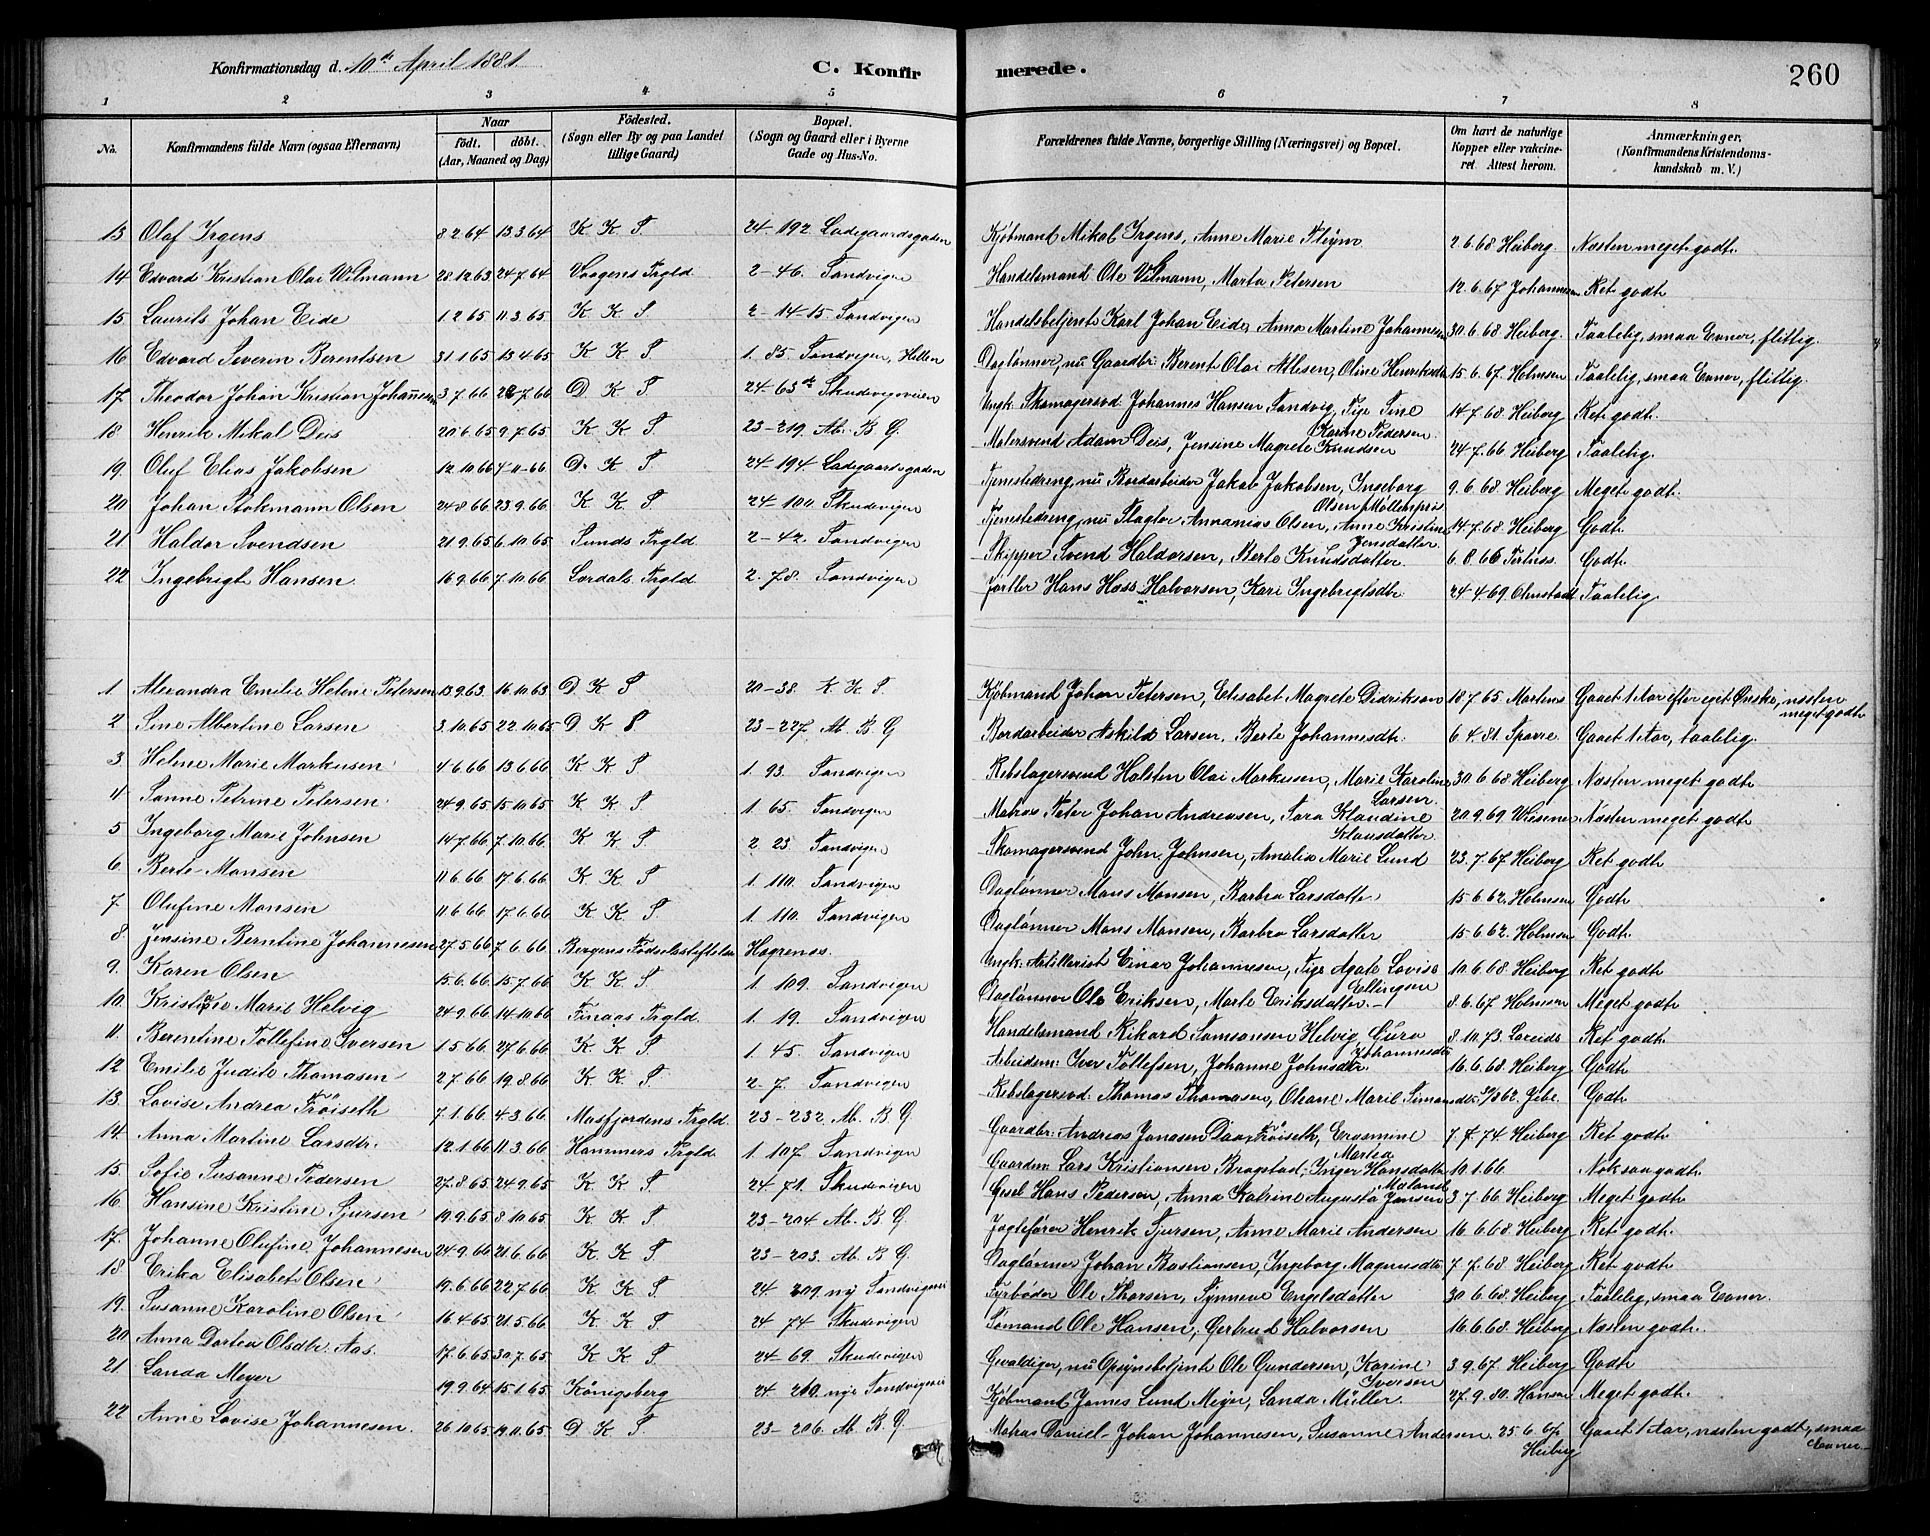 Konfirmationsdag d. 10de April 1881
C. Konfir merede.
260
1 2 3 4 5 6 7 8
No. Konfirmandens fulde Navn (ogsaa Efternavn) Naar födt. döbt. (Aar, Maaned og Dag) Födested. (Sogn eller By og paa Landet tillige Gaard) Bopæl. (Sogn og Gaard eller i Byerne Gade og Hus-No. Forældrenes fulde Navne, borgerlige Stilling (Næringsvei) og Bopæl. Om havt de naturlige Kopper eller vakcineret Attest herom. Anmærkninger. (Konfirmandens Kristendomskundskab m. V.)
13 Olaf Irgens 8 2 64 13 3 64 K K S. 24-192 Ladegaardsgaden Kjöbmand Mikal Irgens, Anne Marie Fleÿm 2.6.68 Heiberg. Næsten meget godt.
14 Edvard Kristian Olai Wilmann 28 12 63 24 7 64 Vaagens Prgld 2-46. Sandvigen Handelsmand Ole Vilmann, Marta Petersen 12.6.67 Johannesen Ret godt
15 Laurits Johan Eide 1. 2 65 11 3. 65 K K S 2-14-15 Sandvigen Handelsbetjent Karl Johan Eide, Anna Martine Johannesen 30.6.68 Heiberg. Taalelig, smaa Evner, flittig.
16 Edvard Severin Berentsen 31. 1 65 13 4 65 K K S 1. 85. Sandvigen, Hellen Daglønner, nu Gaardbr. Berent Olai Nilsen, Oline Henriksdtr 15.6.67 Holmsen Taalelig, smaa Evner, flittig.
17 Theodor Johan Kristian Johannesen 3 7 66 22 7 66 D K S 24-63 Skudevigsveien Ungk: Skomagersvd Johannes Hansen Sandvig, Pige Sine Karine Pedersen. 14.7.68. Heiberg Ret godt.
18 Henrik Mikal Deis 20 6. 65 9 7. 65 K K S 23-219. Ab. B G. Malersvend Adam Deis, Jensine Magrete Knudsen 24 7.66 Heiberg Taalelig.
19 Oluf Elias Jakobsen 12. 10 66 4 11-66 D. K S 24-194 Ladegaardsgaden Tjenestedreng, nu Bordarbeider Jakob Jakobsen, Ingeborg Olsen Möllenpris 9.6.68. Heiberg Meget godt.
20 Johan Stokmann Olsen 24 8 66 23 9. 66 K K S 24-100. Skudevigen Tjenestedreng, nu Slagter Annanias Olsen, Anne Kristine Jensdatter. 14 7.68. Heiberg Godt
21 Haldor Svendsen 21 9.65 6.10.65 Sunds Prgld 2-42. Sandvigen Skipper Svend Haldorsen, Berte Knudsdatter 6.8.66 Godt.
22 Ingebrigt Hansen 16 9.66 7 10.66 Lærdals Prgld 2. 78. Sandvigen Hans Haso Halvorsen, Kari Ingebrigtsdtr 24 4.69. Olmstad Taalelig
1 Alexandra Emilie Helene Petersen 13 9 63. 16 10 63 D K S 20-38. K. K S. Kjöbmand Johan Petersen, Elisabet Magrete Didriksen 18.7.65. Martens Gaaet 1 Aar efter eget Önske, næsten meget godt
2 Sine Albertine Larsen 3 10.65 22.10.65 D K S 23-227. Ab. B G Bordarbeider Askild Larsen, Berte Johannesdtr. 6.4.81. Sparre. Gaaet 1 Aar, taalelig.
3 Helene Marie Markusen 4 6. 66 13 6 66 K K S 1. 93. Sandvigen Rebslagersvend Halsten Olai Markusen, Marie Karoline Larsen. 30.6.68 Heiberg Næsten meget godt
4 Sanne Petrine Petersen 24 9. 65 15 10 65 K K S 1 65. Sandvigen Matros Peter Johan Andreasen, Sara Klandine Klausdatter 20.9.69 Wiesener Næsten meget godt
5 Ingeborg Marie Johnsen 14 7.66 7.10.66 K K S 2 23. Sandvigen Skomagersvend John Johnsen, Amalie Marie Lund 23.7.67 Heiberg Ret godt
6. Berte Monsen 11 6. 66 17 6. 66 K K S 1. 110. Sandvigen Daglønner Mons Monsen, Barbra Larsdatter 15.6.62. Holmsen Godt
7. Olufine Monsen 11. 6. 66 17. 6. 66 K K S 1 110. Sandvigen Daglønner Mons Monsen, Barbro Larsdatter 15-6.62. Holmsen Godt.
8. Jensine Berntine Johannesen 27 5 66 7. 6. 66. Bergens Födselsstiftelse Hagrenæs. Ungk. Artillerist Einar Johannesen, Pige Agate Lovise Ellingsen 10.6.68. Heiberg Ret godt
9. Karen Olsen 15. 6. 66 15 7 66 K K S. 1 109. Sandvigen Daglønner Ole Eriksen, Marte Eriksdatter - 8.6.67 Holmsen Meget godt.
10. Kristine Marie Helvig 24 9. 66 14 10 66 Finaas Prgld. 1. 19. Sandvigen Handelsmand Rikard Samsonsen Helvig, Gura Johannesdtr 8.10.73. Ret godt
11. Berentine Tollefine Iversen 1. 5 66. 27 6. 66 K. K S 1. 45. Sandvigen Arbeidsm: Iver Tollefsen, Johanne Johnsdtr. 16.6.68. Heiberg Godt.
12 Emilie Judite Thomasen 2 7. 66 19. 8 66 K K S. 2- 7. Sandvigen Rebslagersvd: Thomas Thomasen, Oleane Marie Simonsdtr Jibe. Godt
13. Lovise Andrea Fröiseth 7. 1. 66 4. 3. 66 Masfjordens Prgld. 23-232. Ab. B G Gaardbr: Andreas Jonasen Daa Fröiseth, Erasmine Martea 7. 7. 74 Heiberg Ret godt
14. Anna Martine Larsdtr. 12. 1. 66 11. 3. 66 Hammers Prgld. 1. 107 Sandvigen Gaardm: Lars Kristiansen Bragstad, Inger Hansdatter Moland 10.1.66 Nok saa godt.
15. Sofie Susanne Pedersen 27. 8 65 24 9. 65 K K S. 24 71. Skudevigen Gesel Hans Pedersen, Anna Katrine Augusta Jensen 3 7. 66 Heiberg Meget godt.
16. Hansine Kristine Sjursen 19 9. 65 8 10. 65 K K S. 23-204 Ab. B. G. Jagtefører Henrik Sjursen, Anne Marie Andersen 16.6.68. Heiberg Ret godt.
17. Johanne Olufine Johannesen 24. 9. 66 21. 6. 66 K K S 23-203. Ab. B G Daglønner Johan Bastiansen, Ingeborg Magnusdtr 7. 7. 68. Heiberg Ret godt
18 Erika Elisabet Olsen 19. 6. 66 22. 7. 66 K K S 24 209 ny Sandvigsvei Fyrböder Ole Thorsen, Synneve Engelsdatter 30.6.68. Heiberg Taalelig, smaa Evner.
19. Susanne Karoline Olsen 16. 4. 65 21. 5. 66 K K S 24 74 Skudevigen Sömand Ole Hansen, Gertrud Halvorsen 16.6.68. Heiberg Næsten godt.
20 Anna Dortea Olsdtr. Aas. 17. 6. 65 30. 7. 65 K K S. 24-69. Skudevigen Gevaldiger, nu Opsynsbetjent Ole Gundersen, Karine Iversen 3. 9. 67. Heiberg Godt
21. Landa Meyer 19. 9. 64 15. 1. 65 Königsberg 24 210. nye Sandvigsvei Kjöbmand James Lund Meyer, Landa Müller. 27.9.80. Hansen Meget godt.
22 Anne Lovise Johannesen. 26. 10 65 19. 11. 65 D K S. 23-206. Ab. B. G. Matros Daniel Johan Johannesen, Susanne Andersen 25.6.67. Heiberg Gaaet 1 Aar, næsten godt, smaa Evner.